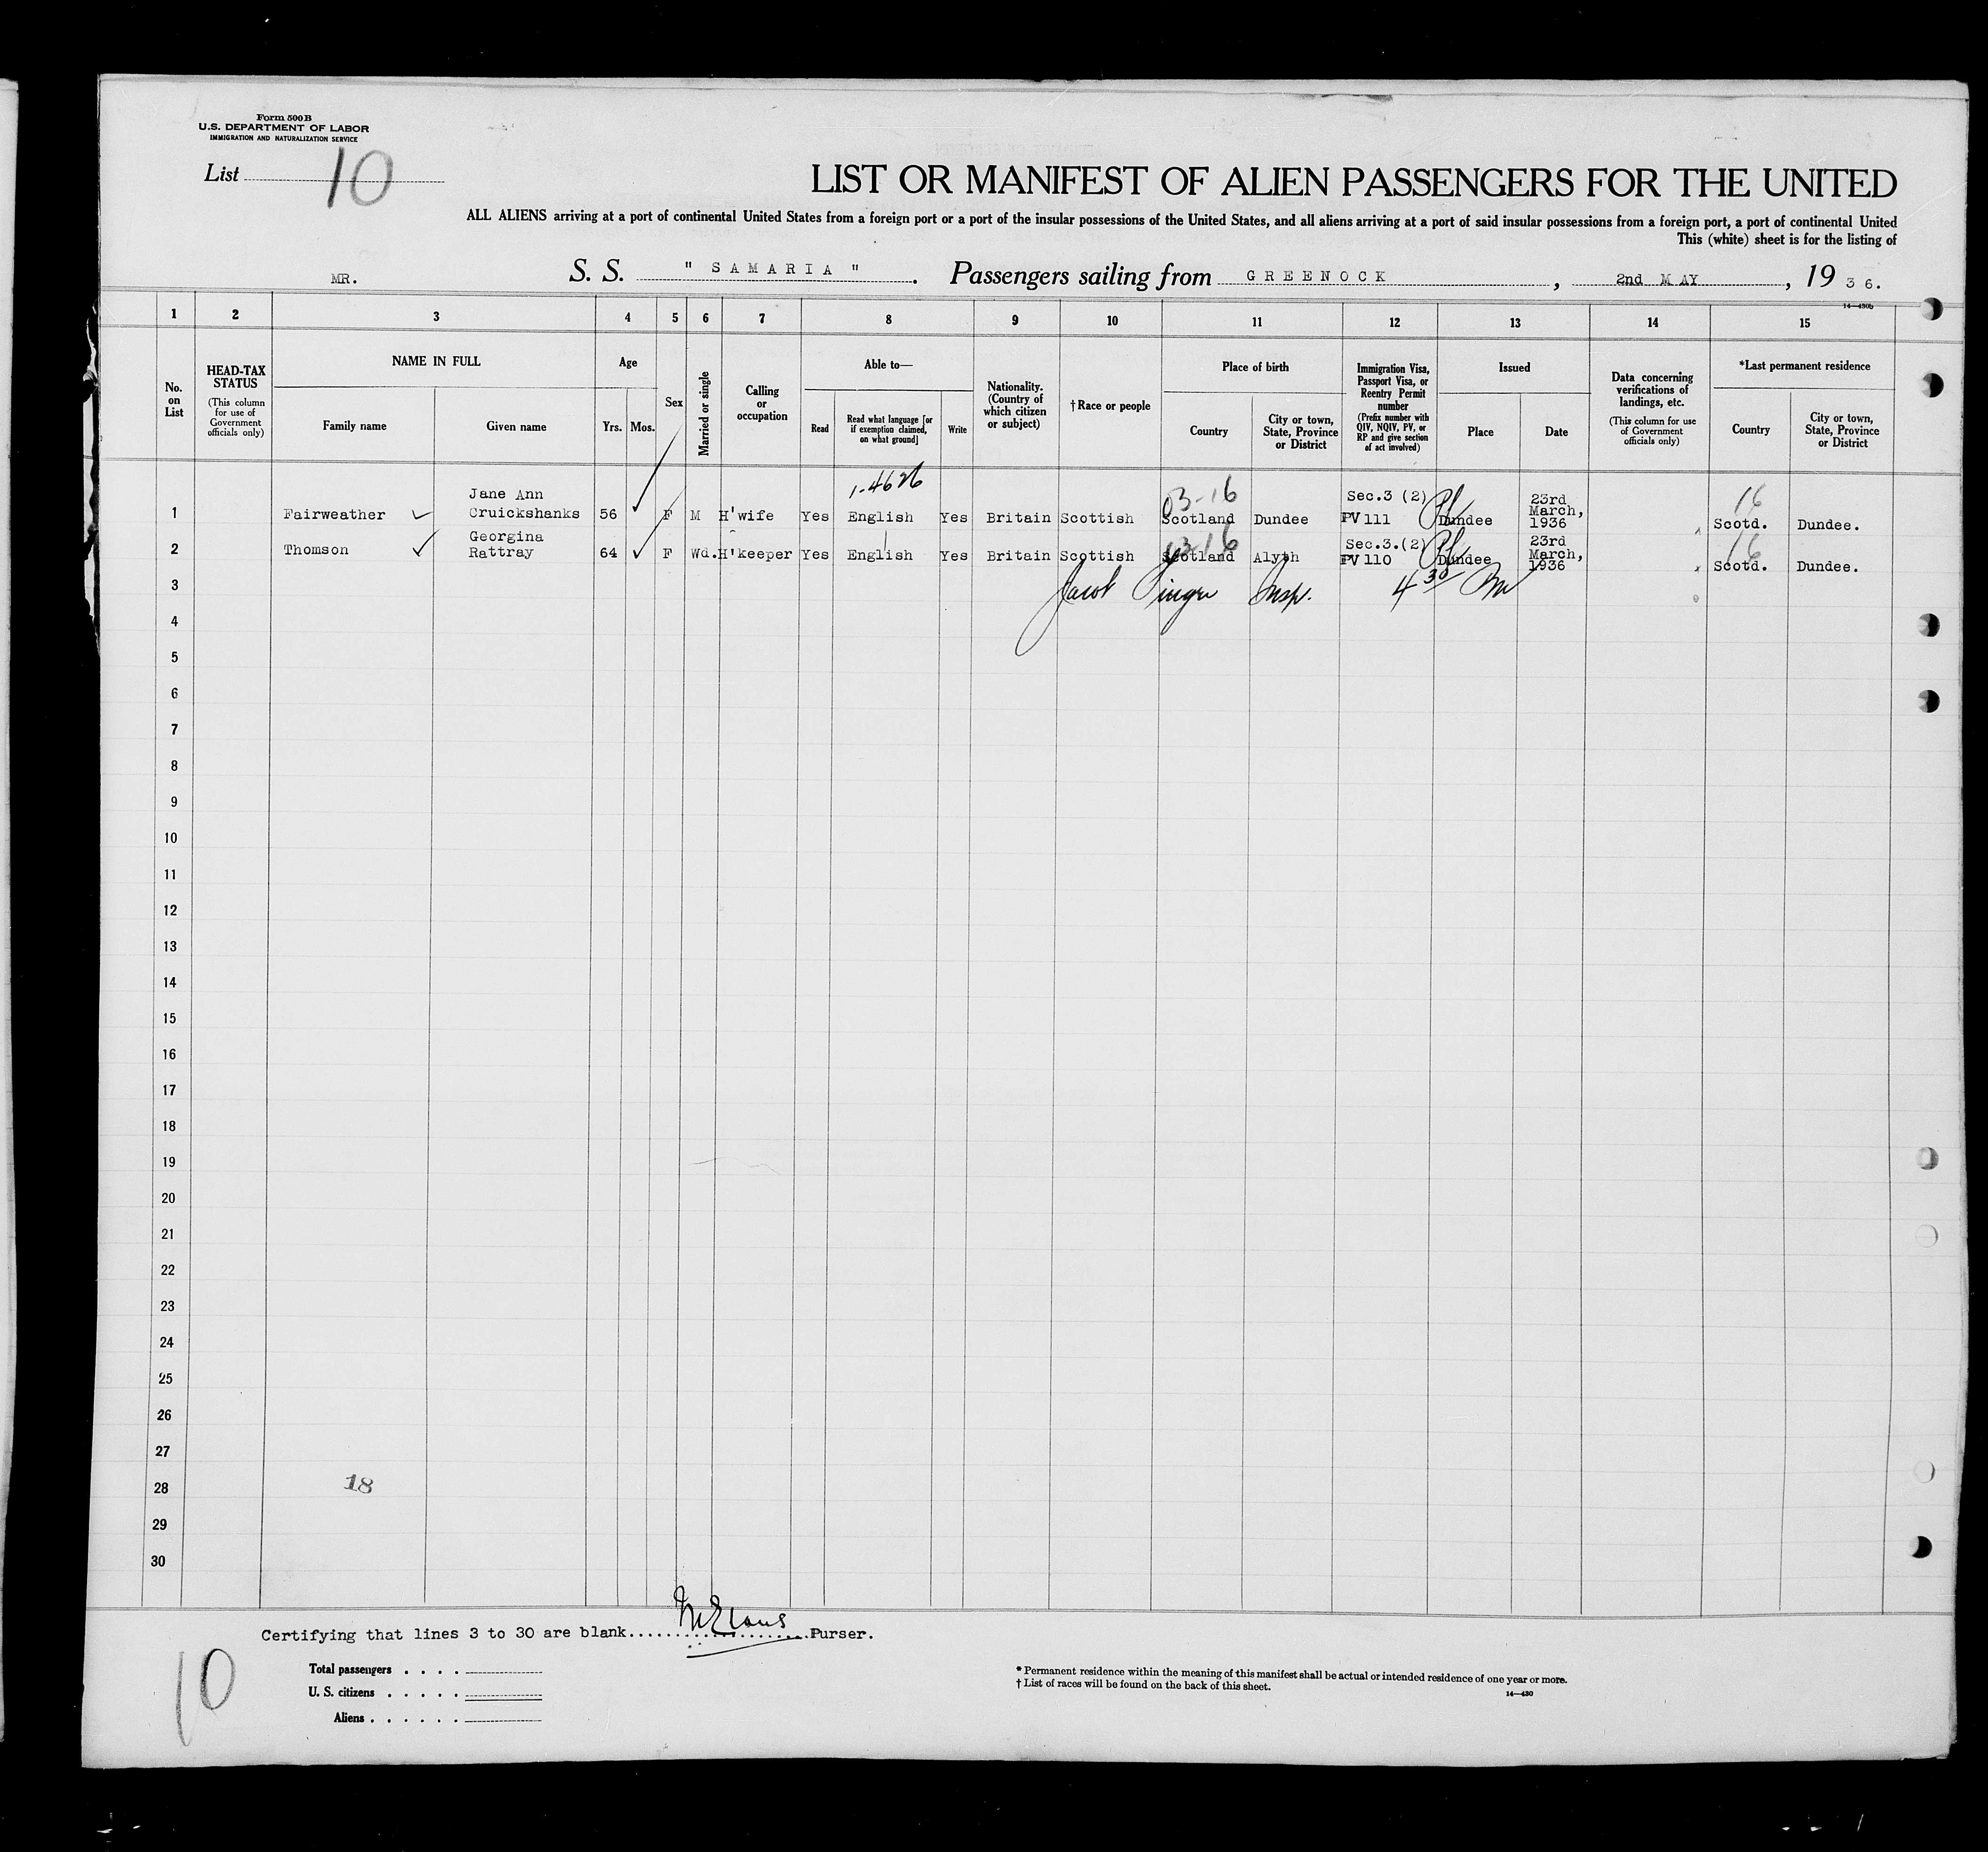 Form 500B
U.S. DEPARTMENT OF LABOR
IMMIGRATION AND NATURALIZATION SERVICE
List 10
LIST OR MANIFEST OF ALIEN PASSENGERS FOR THE UNITED
ALL ALIENS arriving at a port of continental United States from a foreign port or a port of the insular possessions of the United States, and all aliens arriving at a port of said insular possessions from a foreign port, a port of continental United
This (white) sheet is for the listing of
MR. S. S. " SAMARIA ". Passengers sailing from GREENOCK, 2nd MAY, 19 36.
14—430b
1 2 3 4 5 6 7 8 9 10 11 12 13 14 15
No. on List
HEAD-TAX STATUS (This column for use of Government officials only)
NAME IN FULL
Family name
Given name
Age
Yrs. Mos.
Sex
Married or single
Calling or occupation
Able to—
Read
Read what language [or if exemption claimed, on what ground]
Write
Nationality. (Country of which citizen or subject)
†Race or people
Place of birth
Country
City or town, State, Province or District
Immigration Visa, Passport Visa, or Reentry Permit number (Prefix number with QIV, NQIV, PV, or RP and give section of act involved)
Issued
Place
Date
Data concerning verifications of landings, etc. (This column for use of Government officials only)
*Last permanent residence
Country
City or town, State, Province or District
1-4626
03-16
16
1 Fairweather Jane Ann Cruickshanks 56 F M H'wife Yes English Yes Britain Scottish Scotland Dundee Sec.3 (2) PV 111 Dundee 23rd March, 1936 Scotd. Dundee.
16
2 Thomson Georgina Rattray 64 F Wd. H'keeper Yes English Yes Britain Scottish Scotland Alyth Sec.3.(2) PV 110 Dundee 23rd March, 1936 Scotd. Dundee.
3 Jacob Insp. 4 30 PM
4
5
6
7
8
9
10
11
12
13
14
15
16
17
18
19
20
21
22
23
24
25
26
27
28 18
29
30
Certifying that lines 3 to 30 are blank. Purser.
10
Total passengers . . . .
U. S. citizens . . . . .
Aliens . . . . . .
* Permanent residence within the meaning of this manifest shall be actual or intended residence of one year or more.
† List of races will be found on the back of this sheet.
14—430